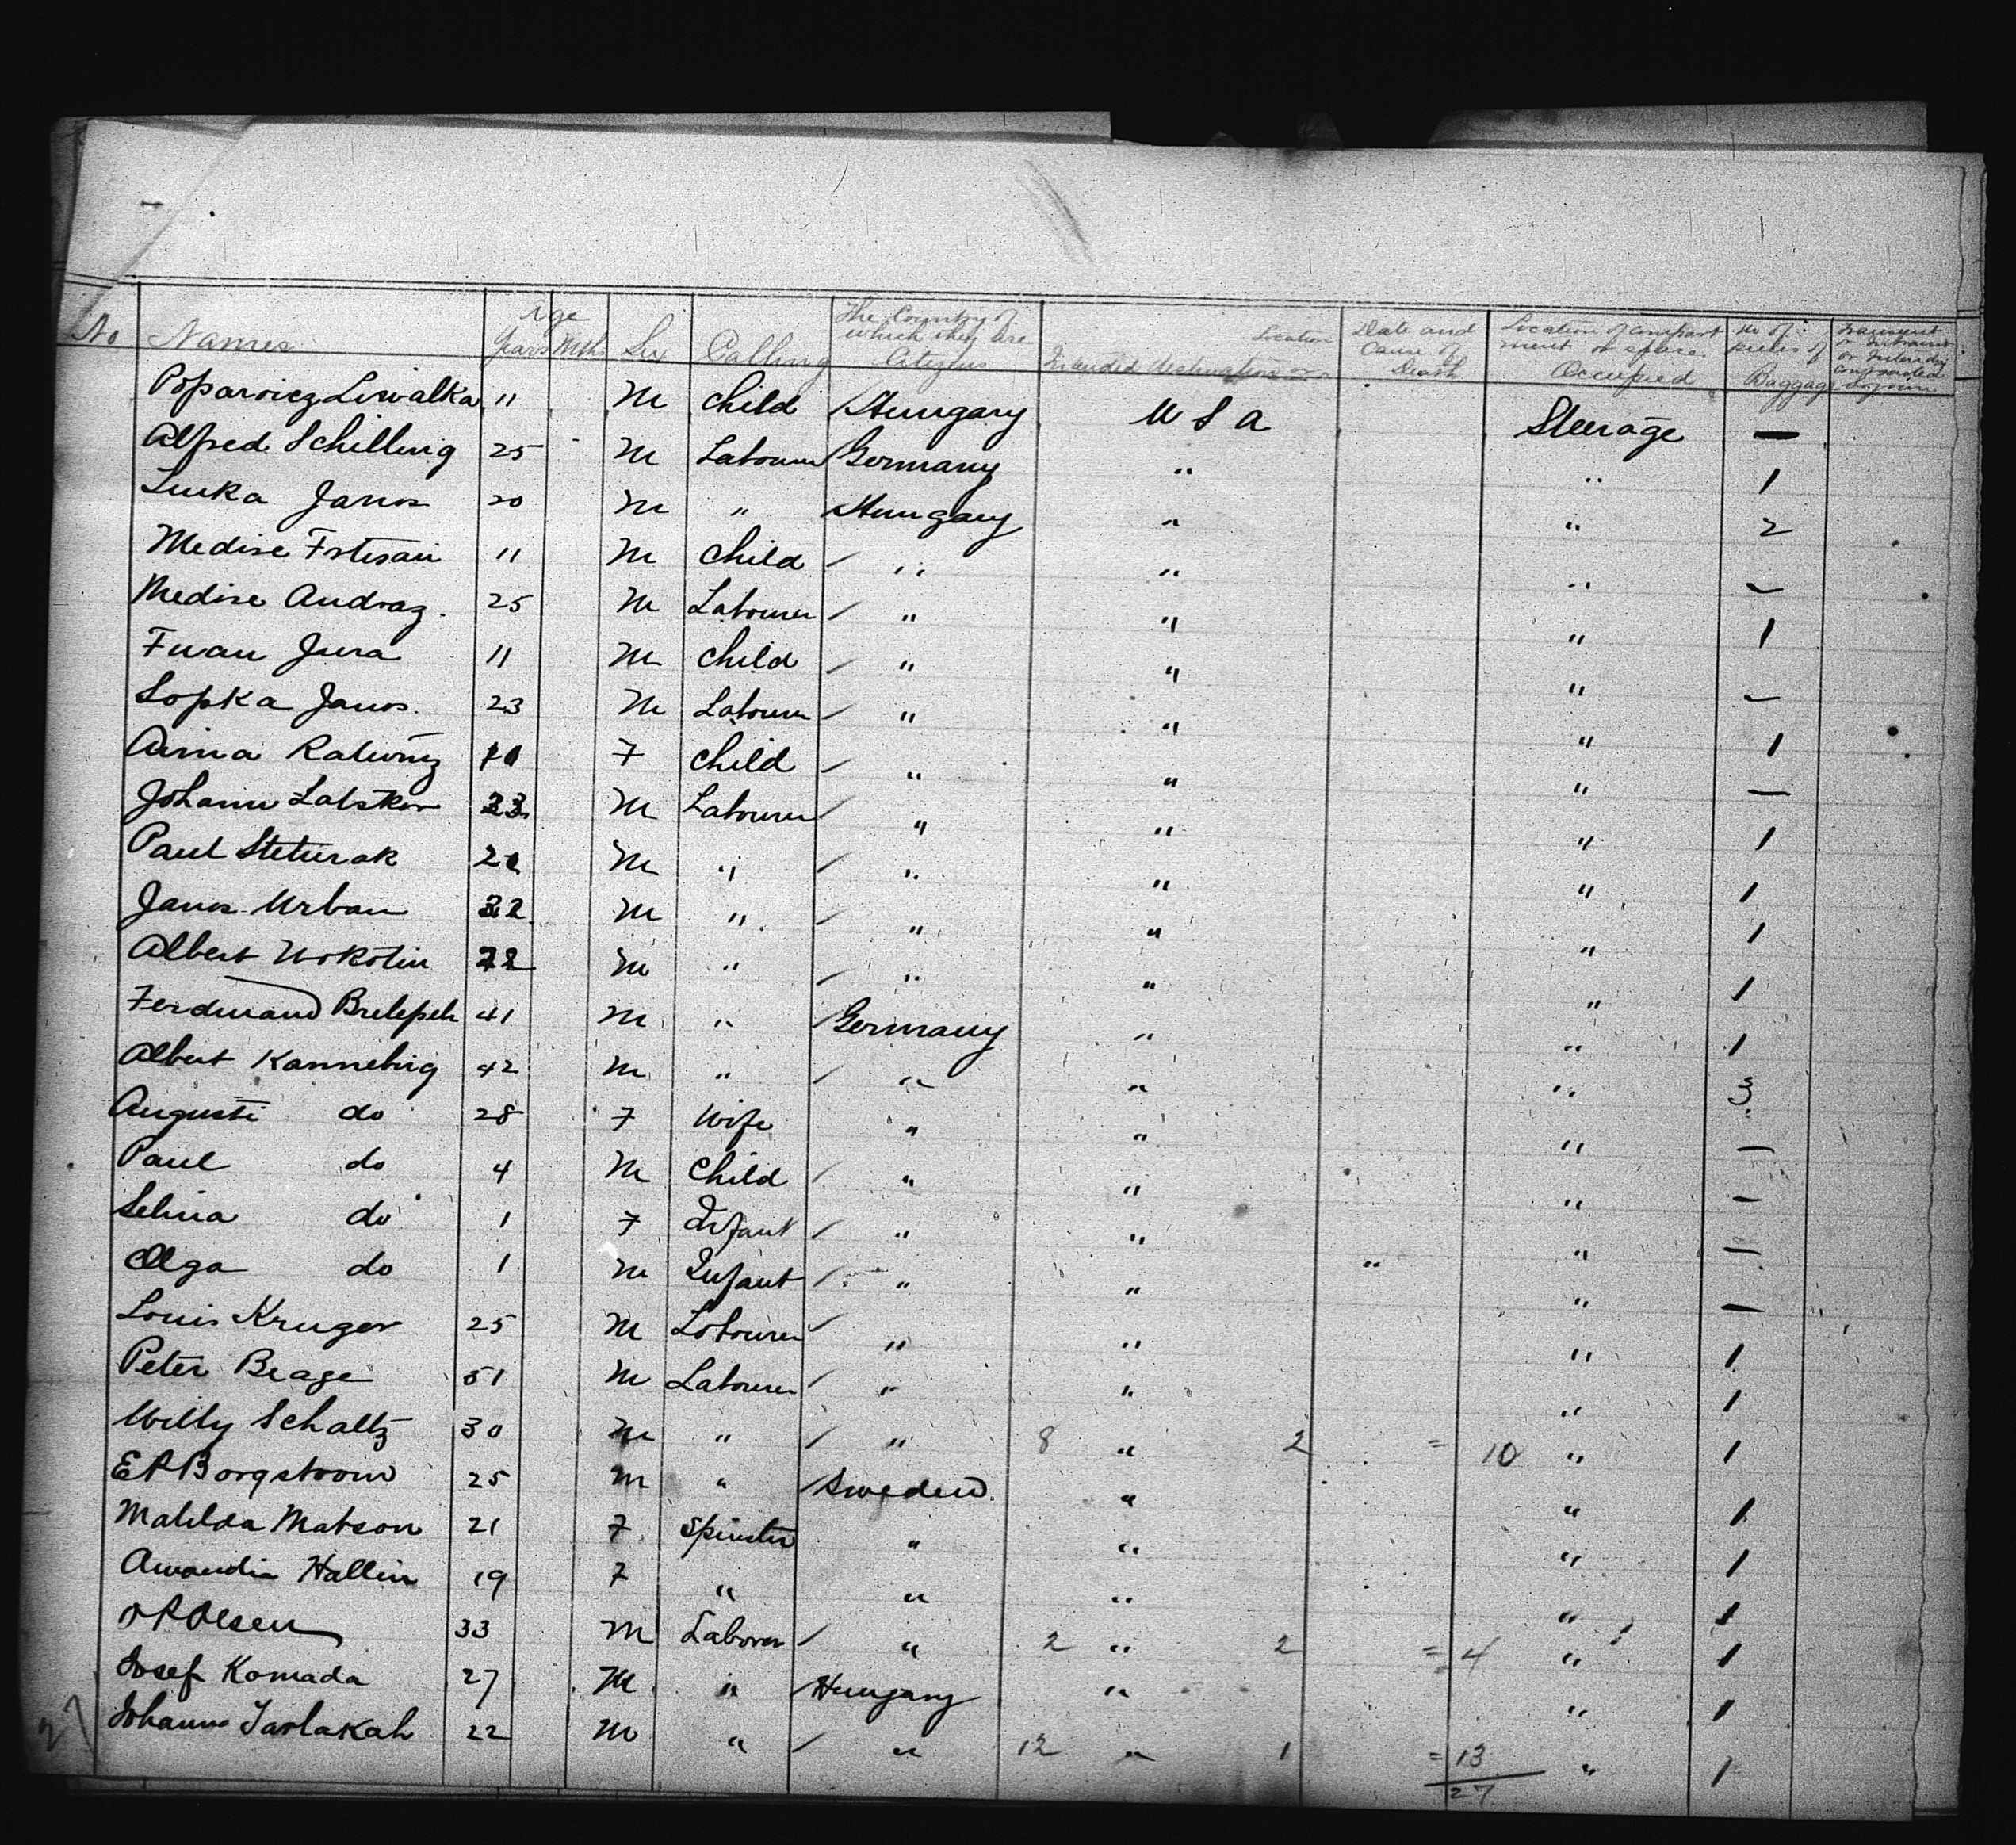 No Names Age Years Mths Sex Calling The Country of which they are Citizens Intended destination or Location Date and Cause of Death Location of compartment or space Occupied No of pieces of Baggage Transient
Poparvicz Liwalka 11 M Child Hungary U S A Steerage —
Alfred Schilling 25 M Labourer Germany " " 1
Luka Janos 20 M " Hungary " " 2
Medise 11 M Child " " " —
Medise Andraz. 25 M Labourer " " " 1
Jura 11 M Child " " " —
Sopka Janos. 23 M Labourer " " " 1
F Child " " " —
Johann 23 M Labourer " " " 1
Paul M " " " " 1
Janos Urban 22 M " " " " 1
Albert 22 M " " " " 1
Ferdinand 41 M " Germany " " 1
Albert Kannebig 42 M " " " " 3
Auguste do 28 F Wife " " " —
Paul do 4 M Child " " " —
Selina do 1 F Infant " " " —
Olga do 1 M Infant " " " " —
Louis Kruger 25 M Labourer " " " 1
Peter Beage 51 M Labourer " " " 1
Willy Schaltz 30 M " " 8 " 2 = 10 " 1
E P Borgstrom 25 M " Sweden. " " 1
Matilda Matson 21 F Spinster " " " 1
Amandia Hallin 19 F " " " " 1
O P Olsen 33 M Laborer " 2 " 2 = 4 " 1
Josef Komada 27 M " Hungary " " 1
27 Johann Taslakah 22 M " " 12 " 1 = 13 " 1
27